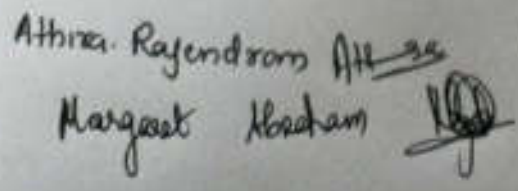 Athira. Rajendran
Margaret Abraham